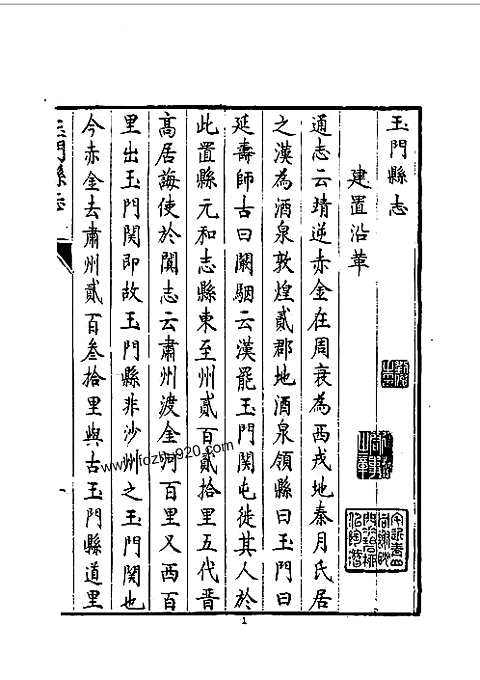 玉門縣志
建置沿革
通志云靖逆赤金在周衰為西戎地秦月氏居
之漢為酒泉敦煌貳郡地酒泉領縣曰玉門曰
延壽師古曰闞駰云漢罷玉門関屯徙其人於
此置縣元和志縣東至州貳百貳拾里五代晋
高居誨使於闐志云肅州渡金河百里又西百
里出玉門関即故玉門縣非沙州之玉門関也
今赤金去肅州貳百叁拾里與古玉門縣道里
玉門縣志
一
www.fozhu920.com
1